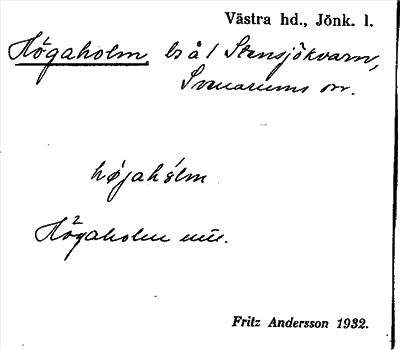 Västra hd., Jönk. l.
Högaholm, ls å 1 Stensjökvarn,
Svenarums sn.
höjahólm
Högaholm
Fritz Andersson 1932.